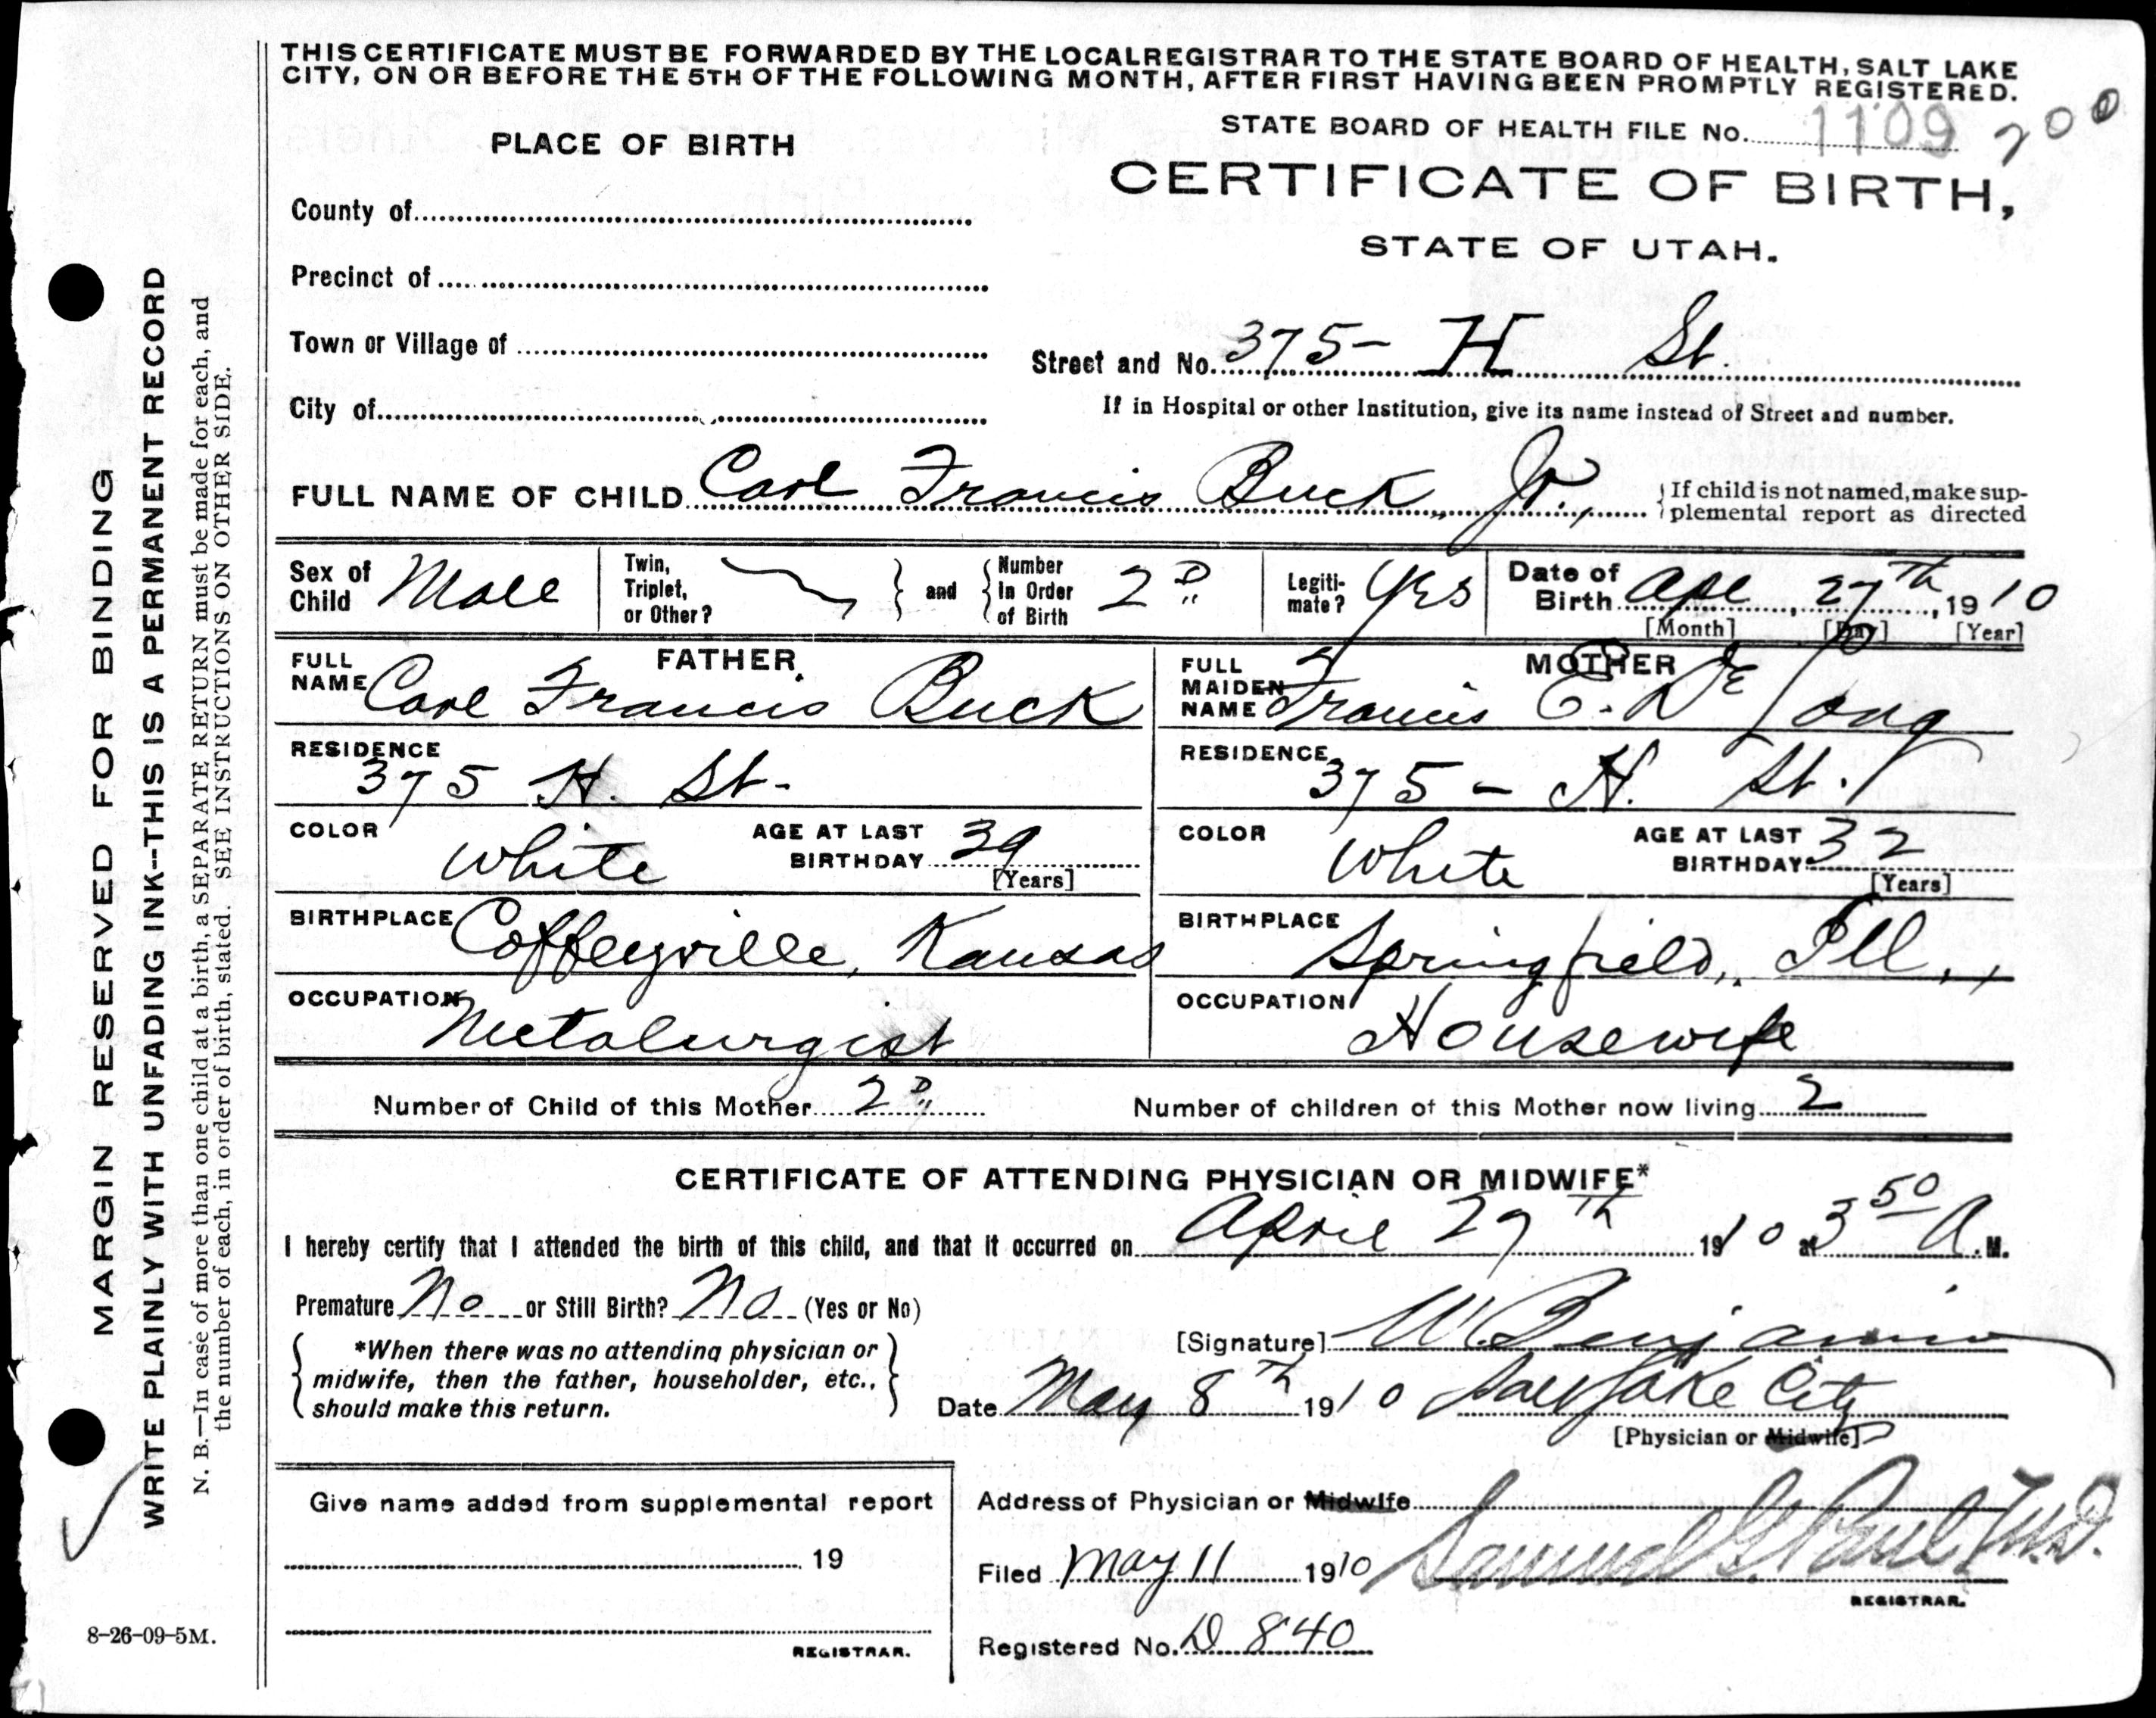 THIS CERTIFICATE MUST BE FORWARDED BY THE LOCAL REGISTRAR TO THE STATE BOARD OF HEALTH, SALT LAKE
CITY, ON OR BEFORE THE 5TH OF THE FOLLOWING MONTH, AFTER FIRST HAVING BEEN PROMPTLY REGISTERED.
STATE BOARD OF HEALTH FILE No. 1109 200
PLACE OF BIRTH
CERTIFICATE OF BIRTH,
STATE OF UTAH.
County of
Precinct of
Town or Village of
Street and No. 375- H St.
City of
If in Hospital or other Institution, give its name instead of Street and number.
FULL NAME OF CHILD Carl Francis Buck, Jr.,
If child is not named, make sup-
plemental report as directed
Sex of Child Male
Twin, Triplet, or Other?
and
Number In Order of Birth 2D
Legiti-mate? Yes
Date of Birth Apl, 27th, 1910
[Month] [Day] [Year]
FATHER.
FULL NAME Carl Francis Buck
RESIDENCE
375 H. St.
COLOR White
AGE AT LAST BIRTHDAY 39
[Years]
BIRTHPLACE Coffeyville, Kansas
OCCUPATION Metalurgist
MOTHER
FULL MAIDEN NAME Francis E. De Long
RESIDENCE
375- H. St.
COLOR White
AGE AT LAST BIRTHDAY 32
[Years]
BIRTHPLACE Springfield, Ill.,
OCCUPATION Housewife
Number of Child of this Mother 2D
Number of children of this Mother now living 2
CERTIFICATE OF ATTENDING PHYSICIAN OR MIDWIFE*
I hereby certify that I attended the birth of this child, and that it occurred on April 27th 1910 at 3 50 A. M.
Premature No or Still Birth? No (Yes or No)
[Signature] W. Benjamin
*When there was no attending physician or
midwife, then the father, householder, etc.,
should make this return.
Date May 8th 1910 Salt Lake City
[Physician or Midwife]
Give name added from supplemental report
19
REGISTRAR.
Address of Physician or Midwife
Filed May 11 1910 Samuel G. Paul M.D.
REGISTRAR.
Registered No. D 840
8-26-09-5M.
MARGIN RESERVED FOR BINDING
WRITE PLAINLY WITH UNFADING INK--THIS IS A PERMANENT RECORD
N. B.—In case of more than one child at a birth, a SEPARATE RETURN must be made for each, and
the number of each, in order of birth, stated. SEE INSTRUCTIONS ON OTHER SIDE.